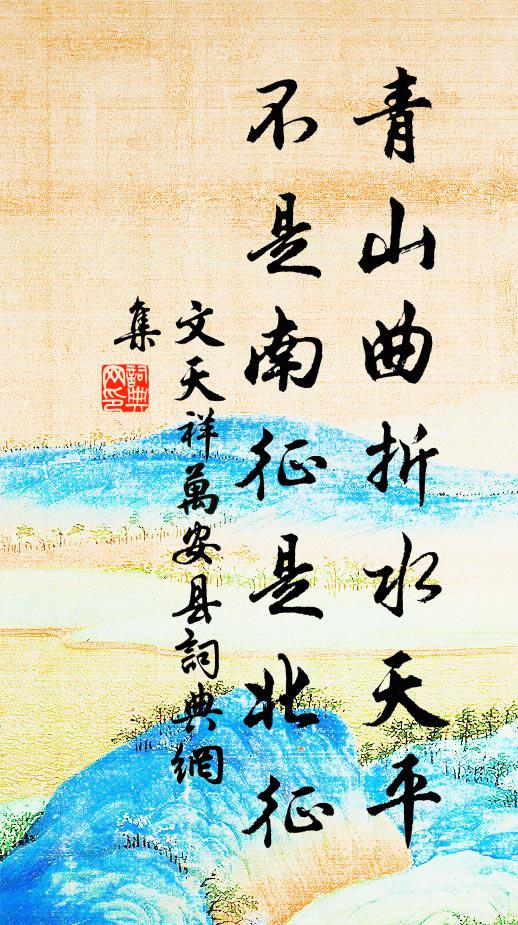 青山曲折水天平
不是南征是北征
文天祥萬安县詞典網
集
詞典
网印